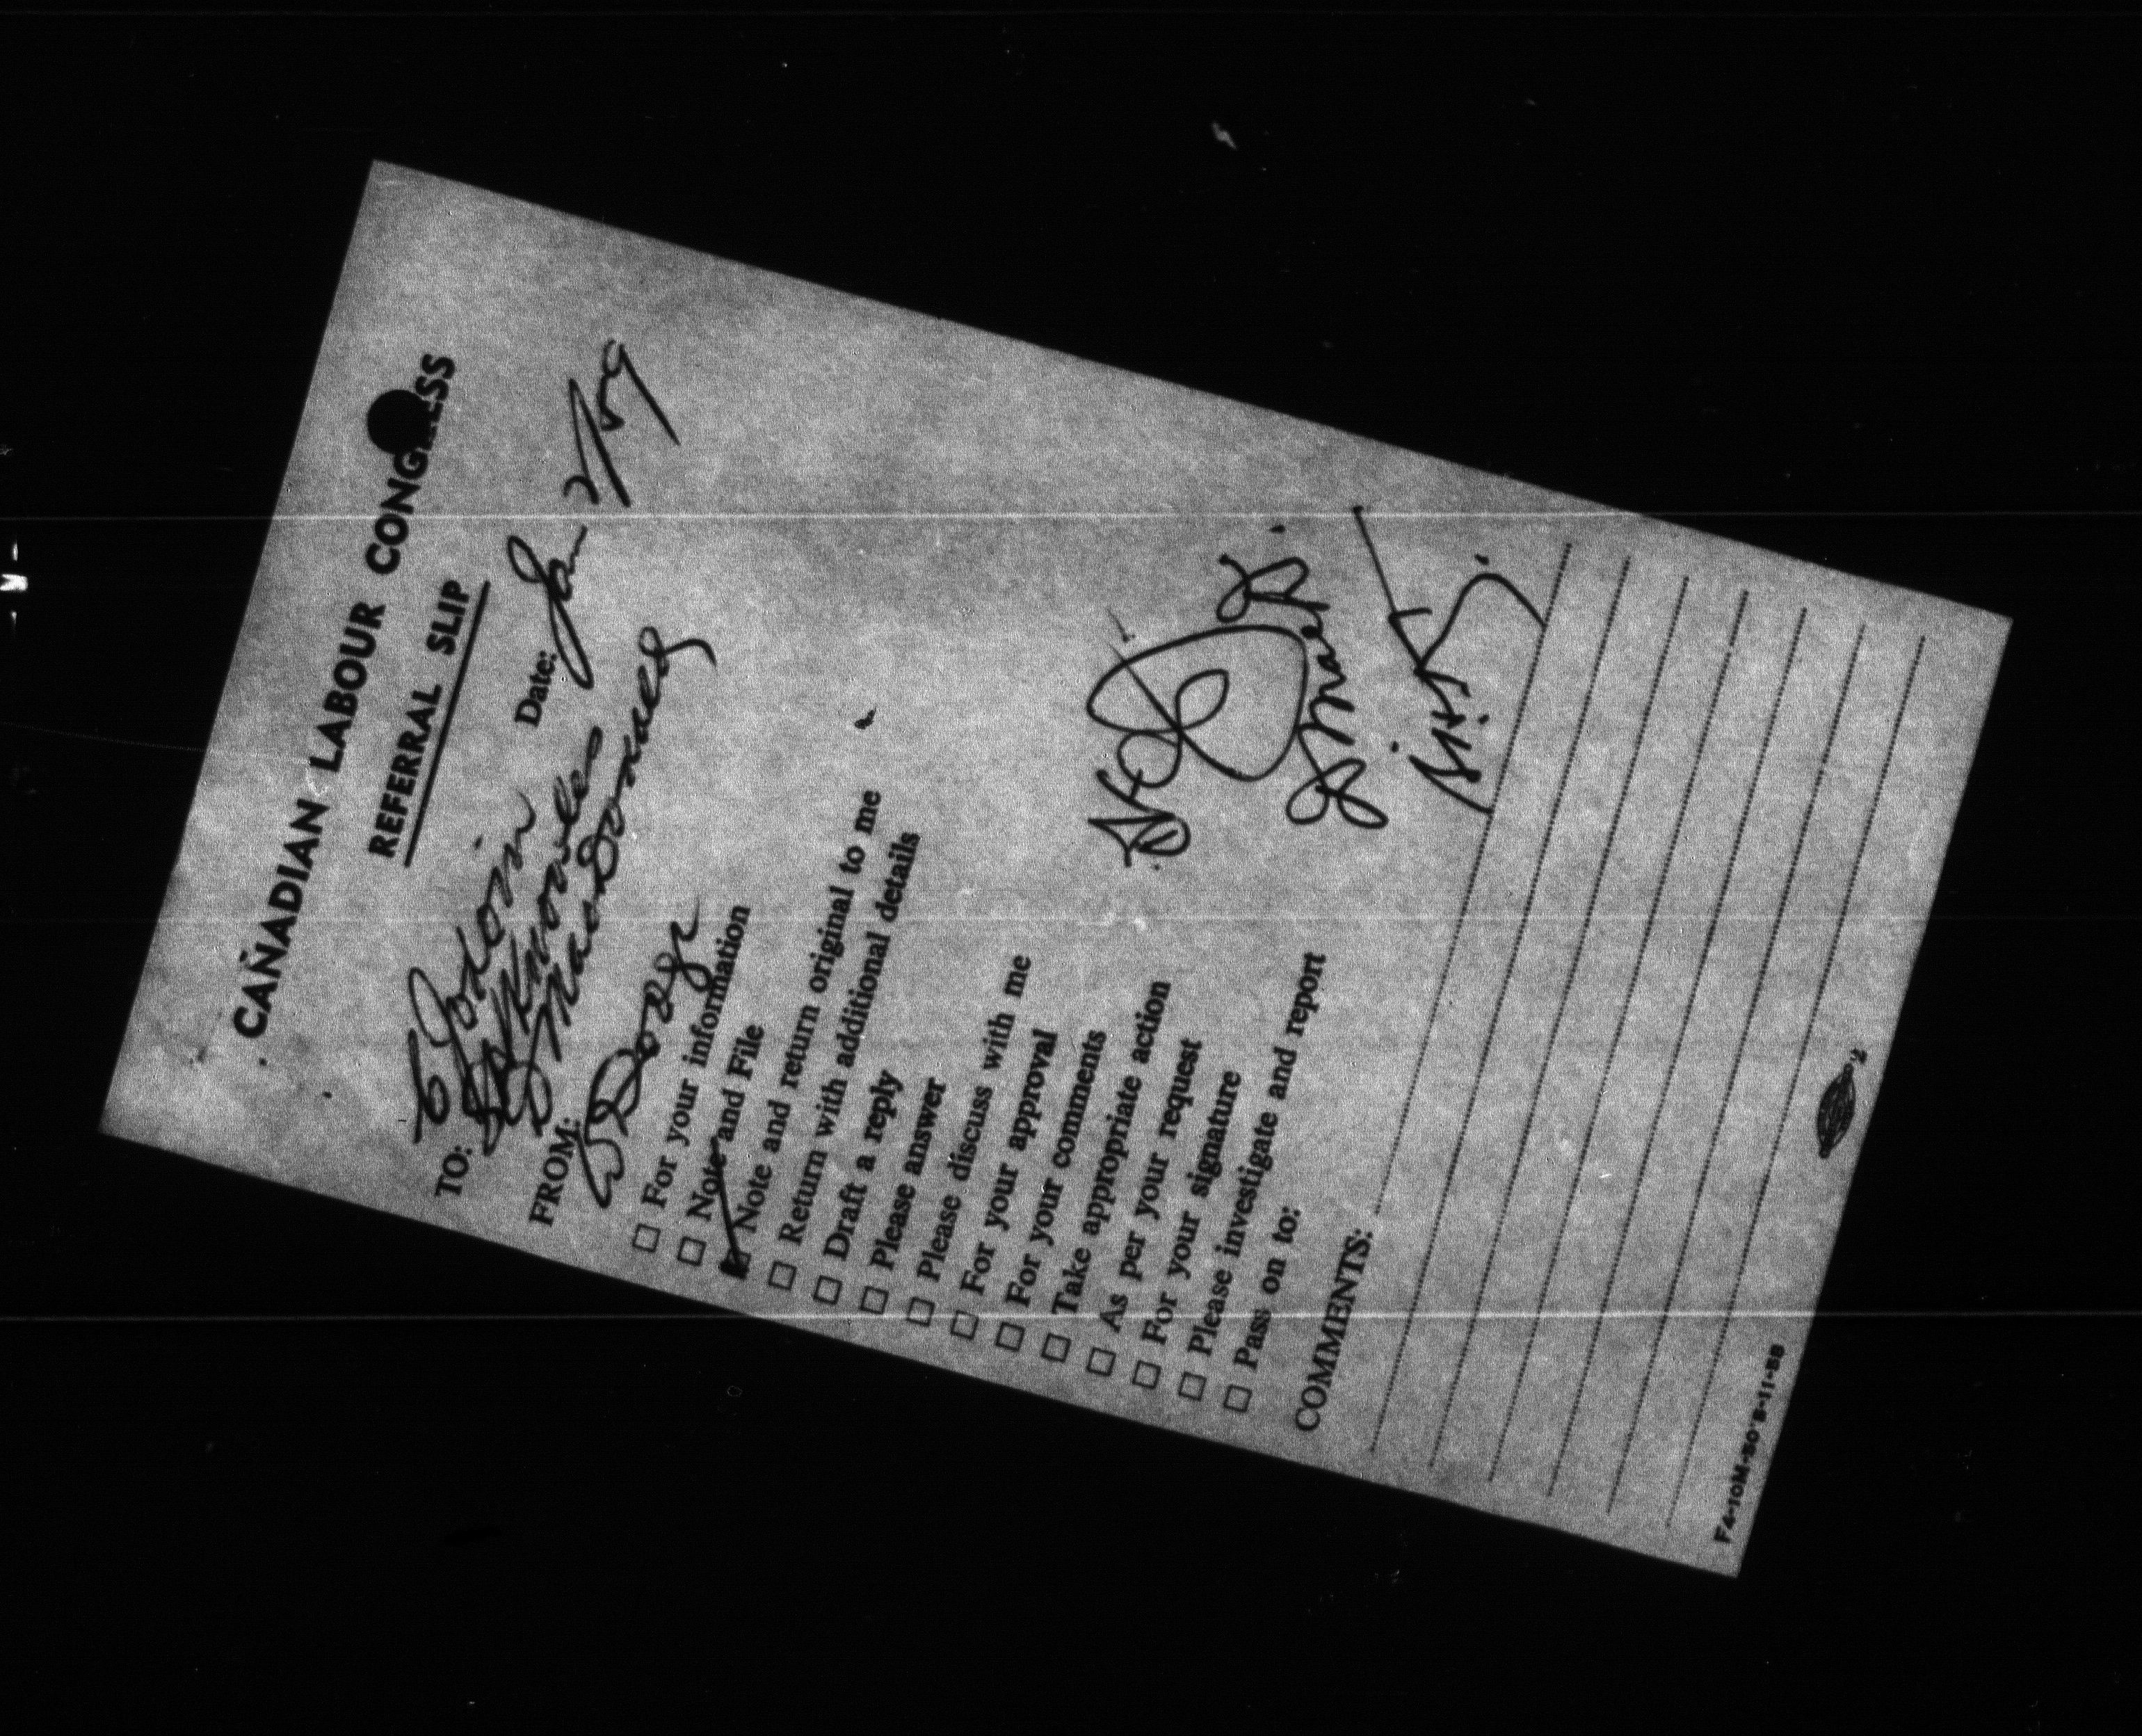 CANADIAN LABOUR CONGRESS
REFERRAL SLIP
Date: Jan 2/59
TO: E Jodoin
Knowles
MacDonald
FROM: Dodge
☐ For your information
☐ Note and File
☑ Note and return original to me
☐ Return with additional details
☐ Draft a reply
☐ Please answer
☐ Please discuss with me
☐ For your approval
☐ For your comments
☐ Take appropriate action
☐ As per your request
☐ For your signature
☐ Please investigate and report
☐ Pass on to:
COMMENTS:
F4-10M-50's-11-58